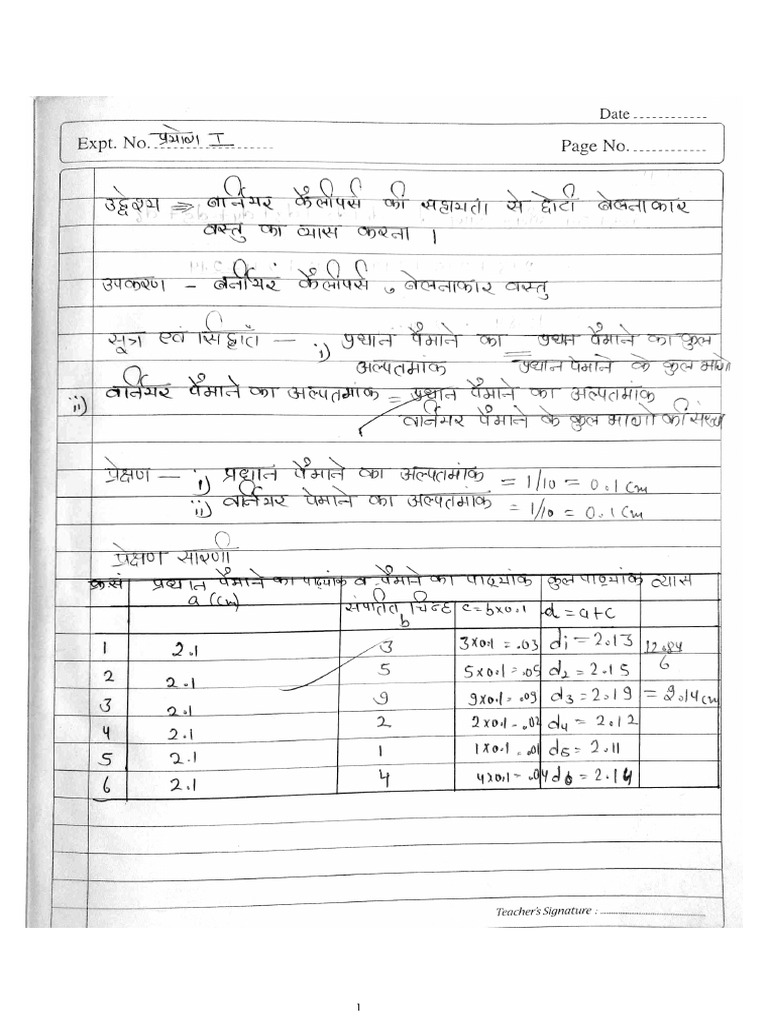 Date
Expt. No. प्रयोग I
Page No.
उद्देश्य ⇒ वर्नियर कैलीपर्स की सहायता से छोटी बेलनाकार
वस्तु का व्यास करना ।
उपकरण - वर्नियर कैलीपर्स , बेलनाकार वस्तु
सूत्र एवं सिद्धांत — i) प्रधान पैमाने का अल्पतमांक = प्रधान पैमाने का कुल / प्रधान पैमाने के कुल भागो
ii) वर्नियर पैमाने का अल्पतमांक = प्रधान पैमाने का अल्पतमांक
वर्नियर पैमाने के कुल भागो की संख्या
प्रेक्षण — i) प्रधान पैमाने का अल्पतमांक = 1/10 = 0.1 cm
ii) वर्नियर पेमाने का अल्पतमांक = 1/10 = 0.1 cm
प्रेक्षण सारणी
क्र.सं प्रधान पैमाने का पाठ्यांक व. पैमाने का पाठ्यांक कुल पाठ्यांक व्यास
a (cm) संपतित चिन्ह b c = b×0.1 d = a+c
1 2.1 3 3×0.1 = .03 d1 = 2.13 12.84
2 2.1 5 5×0.1 = .05 d2 = 2.15 6
3 2.1 9 9×0.1 = .09 d3 = 2.19 = 2.14 cm
4 2.1 2 2×0.1 - .02 d4 = 2.12
5 2.1 1 1×0.1 = .01 d5 = 2.11
6 2.1 4 4×0.1 = .04 d6 = 2.14
Teacher's Signature :
1